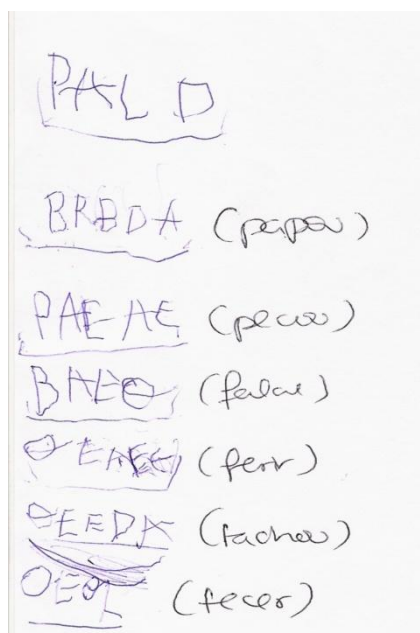 PAL D
BRBDA (papou)
PAEAE (pecou)
BAEO (falar)
OEAEE (ferir)
OEEDA (fachou)
OEOL (fecer)